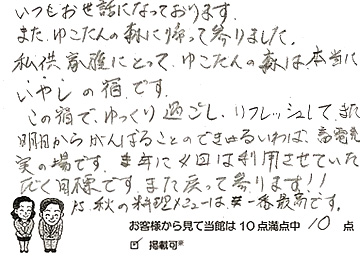 いつもお世話になっております。
また、ゆこたんの森に帰って参りました。
私供家族にとって、ゆこたんの森は本当に
いやしの宿です。
この宿で、ゆっくり過ごし、リフレッシュして、また
明日からがんばることのできるいわば、蓄電充
実の場です。年に4回は利用させていた
だく目標です。また戻って参ります!!
PS 秋の料理メニューは一番最高です。
お客様から見て当館は10点満点中 10 点
☑ 掲載可※